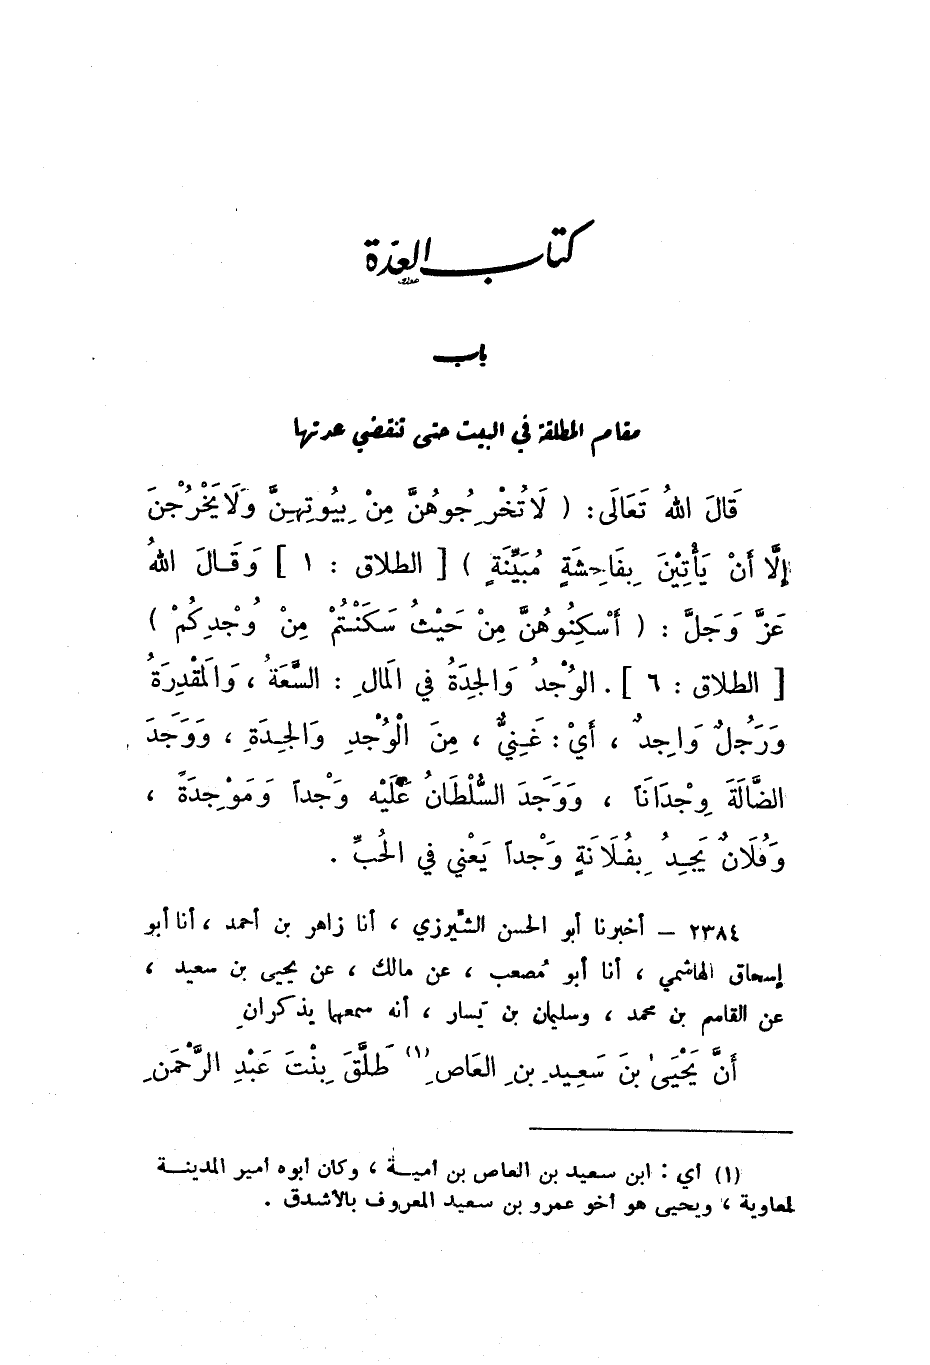 كتاب العدة
باب
مقام المطلقة في البيت حتى تنقضي عدتها
قَالَ اللهُ تَعَالَى: ( لَا تُخْرِجُوهُنَّ مِنْ بِيُوتِهِنَّ وَلَا يَخْرُجْنَ
إِلَّا أَنْ يَأْتِيْنَ بِفَاحِشَةٍ مُبَيِّنَةٍ ) [ الطلاق : ١ ] وَقَالَ اللهُ
عَزَّ وَجَلَّ : ( أَسْكِنُوهُنَّ مِنْ حَيْثُ سَكَنْتُمْ مِنْ وُجْدِكُمْ )
[ الطلاق : ٦ ] . الوُجْدُ وَالجِدَةُ في المَالِ : السَّعَةُ ، وَالمَقْدِرَةُ
وَرَجُلٌ وَاجِدٌ ، أَيْ : غَنِيٌّ ، مِنَ الْوُجْدِ وَالجِدَةِ ، وَوَجَدَ
الضَّالَةَ وِجْدَانَاً ، وَوَجَدَ السُّلْطَانُ عَلَيْهِ وَجْداً وَمَوْجِدَةً ،
وَفُلَانٌ يَجِدُ بِفُلَانَةٍ وَجْداً يَعْني في الحُبِّ .
٢٣٨٤ – أخبرنا أبو الحسن الشَّيرزي ، أنا زاهر بن أحمد ، أنا أبو
إسحاق الهاشمي ، أنا أبو مُصعب ، عن مالك ، عن يحيى بن سعيد ،
عن القاسم بن محمد ، وسليمان بن يَسار ، أنه سمعهما يذكران
أَنَّ يَحْيَى بنَ سَعِيدِ بنِ العَاصِ (١) طَلَّقَ بِنْتَ عَبْدِ الرَّحْمَنِ
(١) أي : ابن سعيد بن العاص بن أمية ، وكان أبوه أمير المدينة
لمعاوية ، ويحيى هو أخو عمرو بن سعيد المعروف بالأشدق .